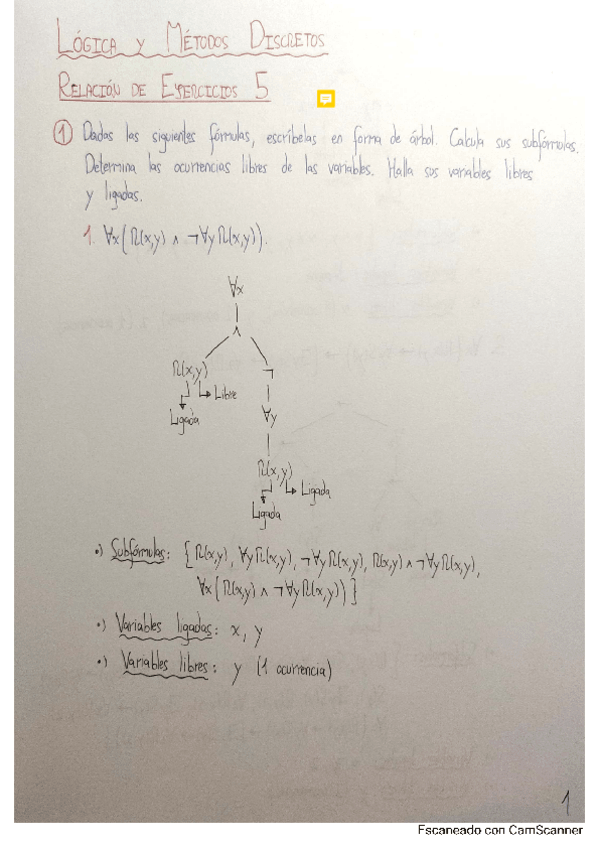 LÓGICA Y MÉTODOS DISCRETOS
RELACIÓN DE EJERCICIOS 5
① Dadas las siguientes fórmulas, escríbelas en forma de árbol. Calcula sus subfórmulas.
Determina las ocurrencias libres de las variables. Halla sus variables libres
y ligadas.
1. ∀x(R(x,y) ∧ ¬∀yR(x,y)).
∀x
∧
R(x,y) ¬
Libre
Ligada ∀y
R(x,y)
Ligada
Ligada
•) Subfórmulas: {R(x,y), ∀yR(x,y), ¬∀yR(x,y), R(x,y) ∧ ¬∀yR(x,y),
∀x(R(x,y) ∧ ¬∀yR(x,y))}
•) Variables ligadas: x, y
•) Variables libres: y (1 ocurrencia)
1
Escaneado con CamScanner